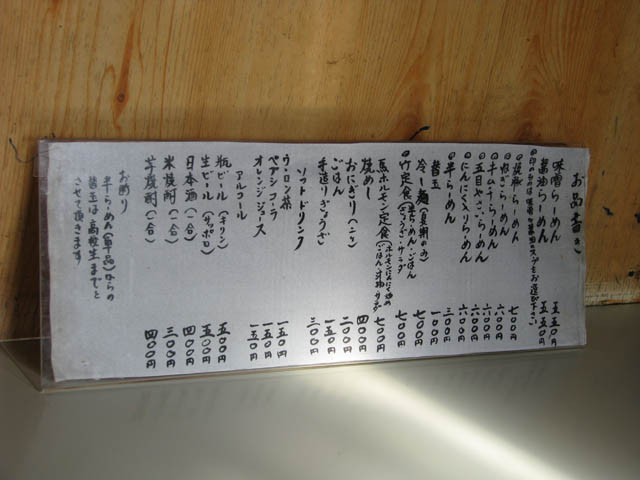 お品書き
味噌らーめん 五五〇円
醤油らーめん 五五〇円
らーめん 七〇〇円
ねぎらーめん 六〇〇円
チャーシューらーめん
五目やさいらーめん 六〇〇円
にんにくらーめん 六〇〇円
半らーめん 三〇〇円
替玉 一〇〇円
冷し麺(夏期のみ) 七〇〇円
竹定食(半らーめん・ごはん ぎょうざ・サラダ) 七〇〇円
馬ホルモン定食(ホルモンにんにく炒め ごはん・汁物・サラダ) 七〇〇円
焼めし 四〇〇円
おにぎり(二ヶ) 二〇〇円
ごはん 一五〇円
手造りぎょうざ 三〇〇円
ソフトドリンク
ウーロン茶 一五〇円
ペプシコーラ 一五〇円
オレンジジュース 一五〇円
アルコール
瓶ビール(キリン) 五〇〇円
生ビール(サッポロ) 五〇〇円
日本酒(一合) 四〇〇円
米焼酎(一合) 三〇〇円
芋焼酎(一合) 四〇〇円
お断り
半らーめん(単品)からの
替玉は高校生までと
させて頂きます